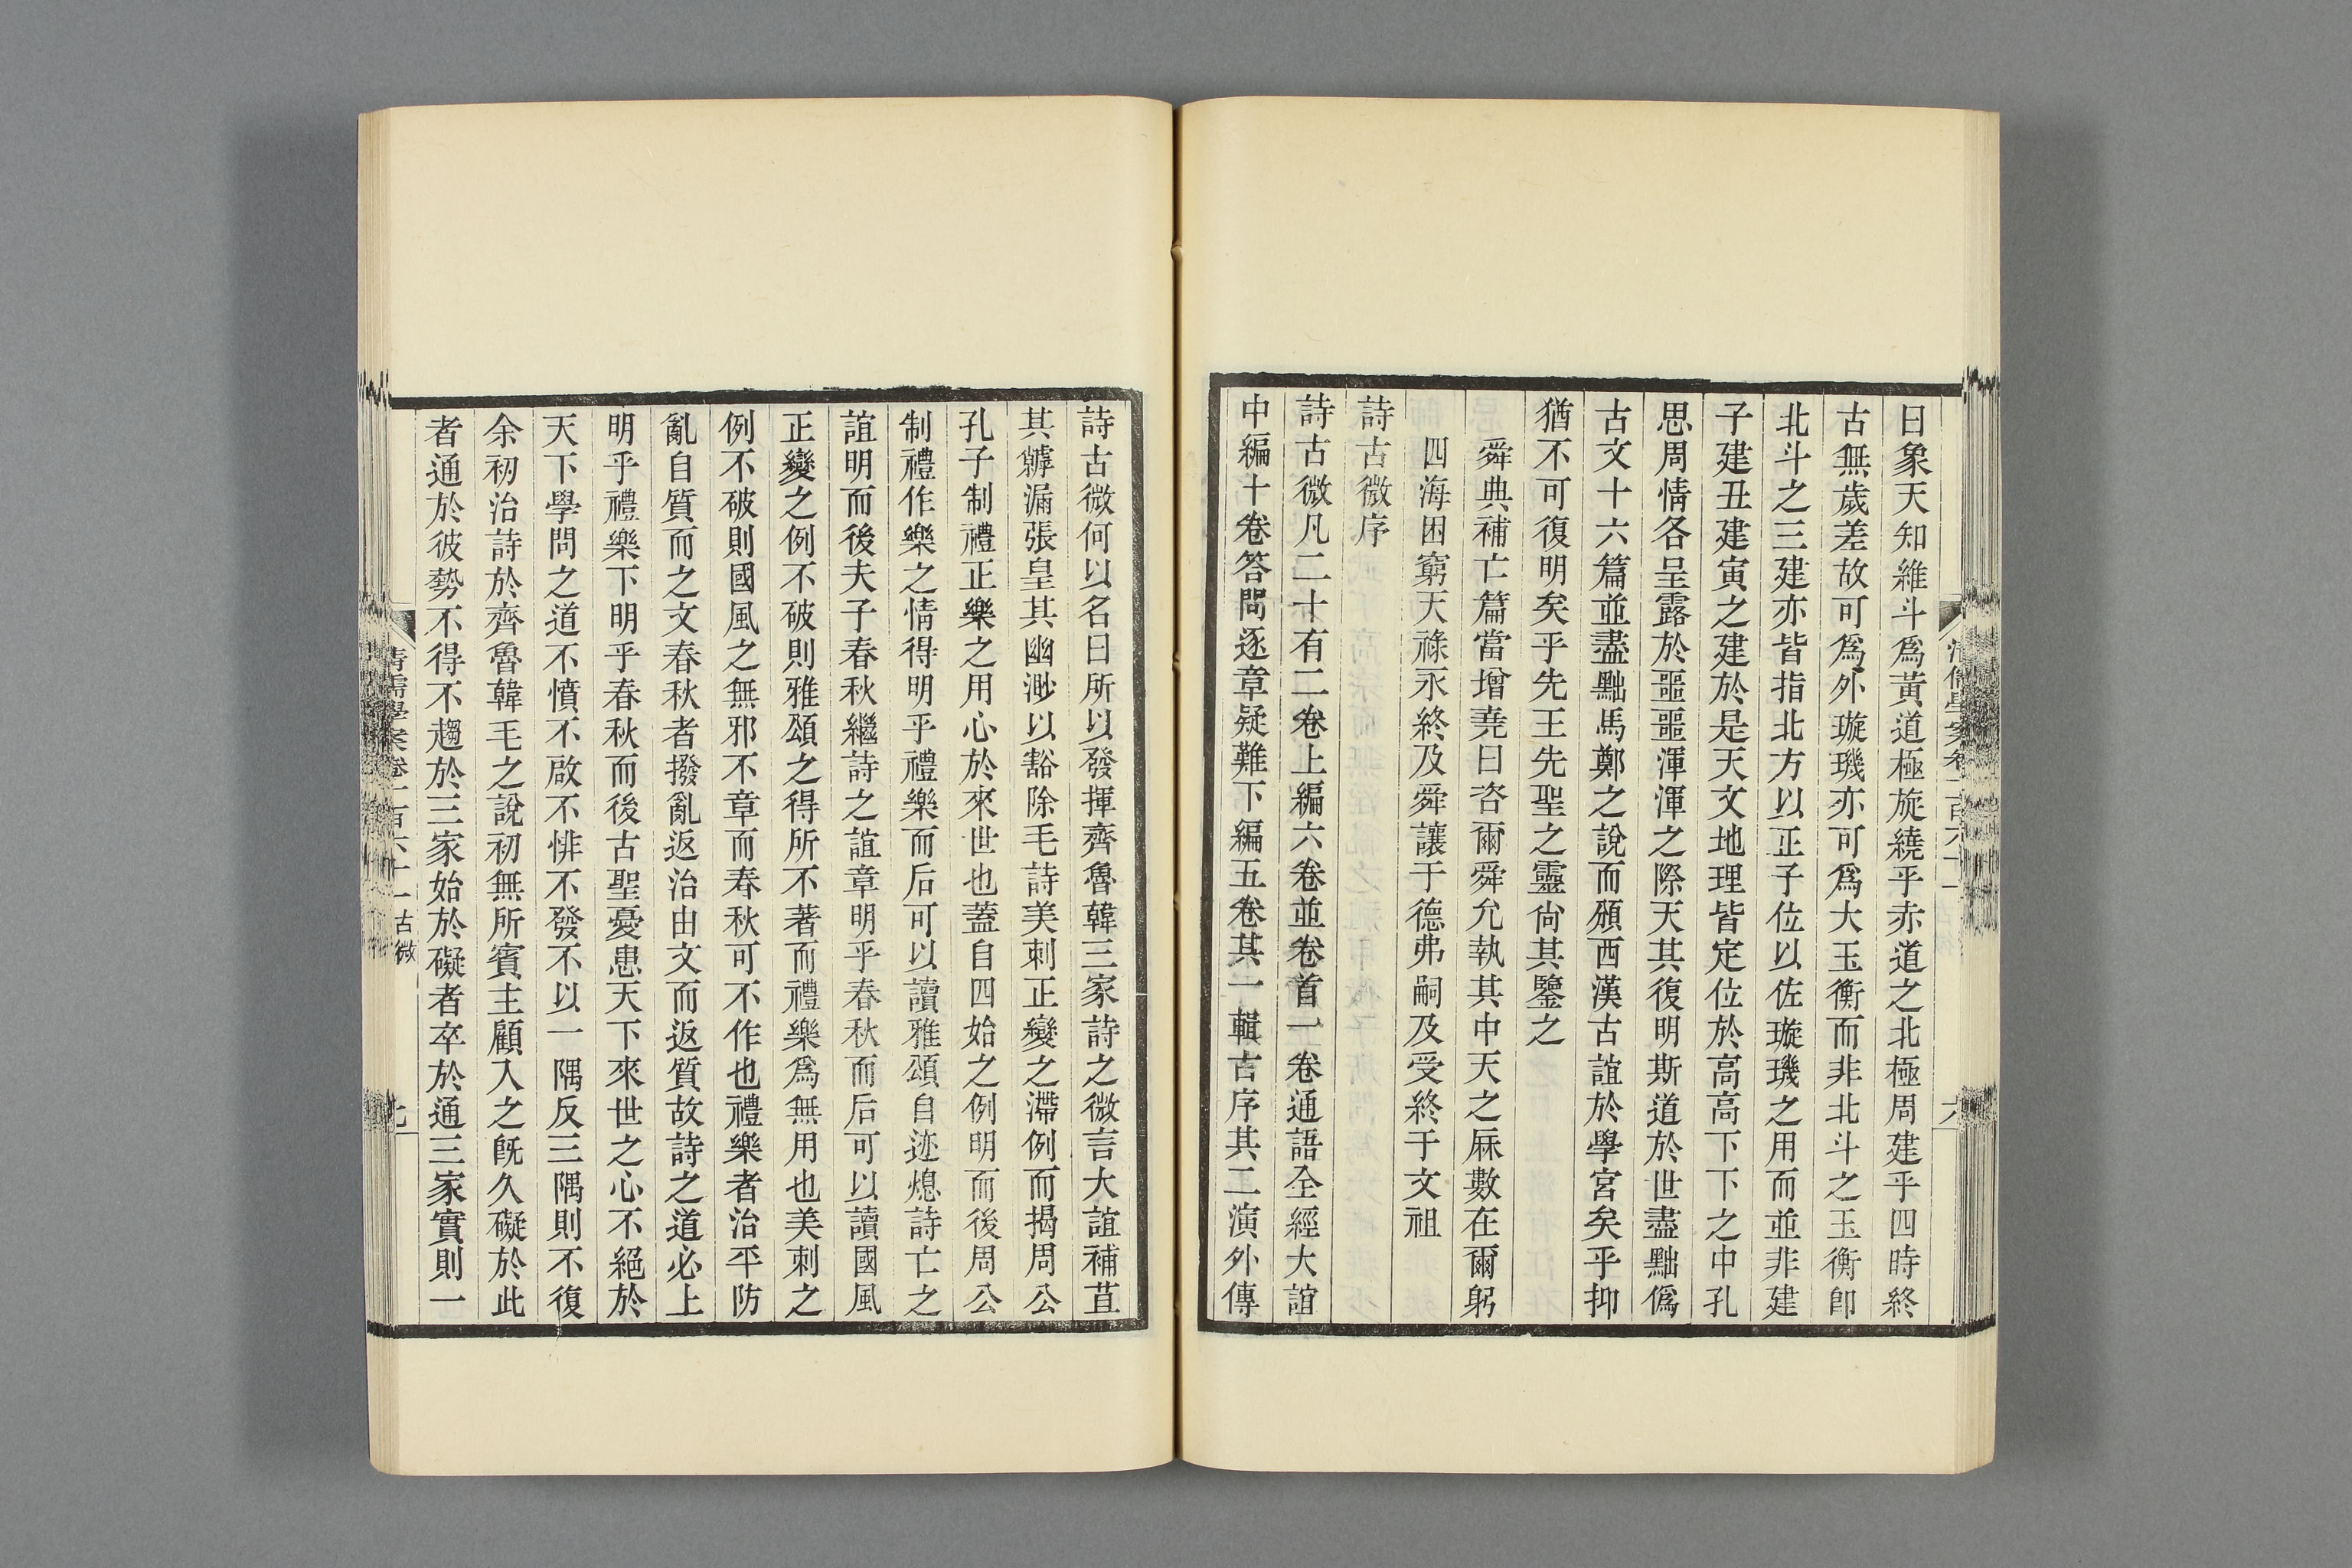 曰象天知維斗爲黃道極旋繞乎赤道之北極周建乎四時終
古無歲差故可爲外璇璣亦可爲大玉衡而非北斗之玉衡卽
北斗之三建亦皆指北方以正子位以佐璇璣之用而並非建
子建丑建寅之建於是天文地理皆定位於高高下下之中孔
思周情各呈露於噩噩渾渾之際天其復明斯道於世盡黜僞
古文十六篇並盡黜馬鄭之說而頒西漢古誼於學宮矣乎抑
猶不可復明矣乎先王先聖之靈尙其鑒之
舜典補亡篇當增堯曰咨爾舜允執其中天之厤數在爾躬
四海困窮天祿永終及舜讓于德弗嗣及受終于文祖
詩古微序
詩古微凡二十有二卷上編六卷並卷首一卷通語全經大誼
中編十卷答問逐章疑難下編五卷其一輯古序其二演外傳
清儒學案卷一百六十一
六
詩古微何以名曰所以發揮齊魯韓三家詩之微言大誼補苴
其罅漏張皇其幽渺以豁除毛詩美刺正變之滯例而揭周公
孔子制禮正樂之用心於來世也蓋自四始之例明而後周公
制禮作樂之情得明乎禮樂而后可以讀雅頌自迹熄詩亡之
誼明而後夫子春秋繼詩之誼章明乎春秋而后可以讀國風
正變之例不破則雅頌之得所不著而禮樂爲無用也美刺之
例不破則國風之無邪不章而春秋可不作也禮樂者治平防
亂自質而之文春秋者撥亂返治由文而返質故詩之道必上
明乎禮樂下明乎春秋而後古聖憂患天下來世之心不絕於
天下學問之道不憤不啟不悱不發不以一隅反三隅則不復
余初治詩於齊魯韓毛之說初無所賓主顧入之旣久礙於此
者通於彼勢不得不趨於三家始於礙者卒於通三家實則一
清儒學案卷一百六十一 古微
七